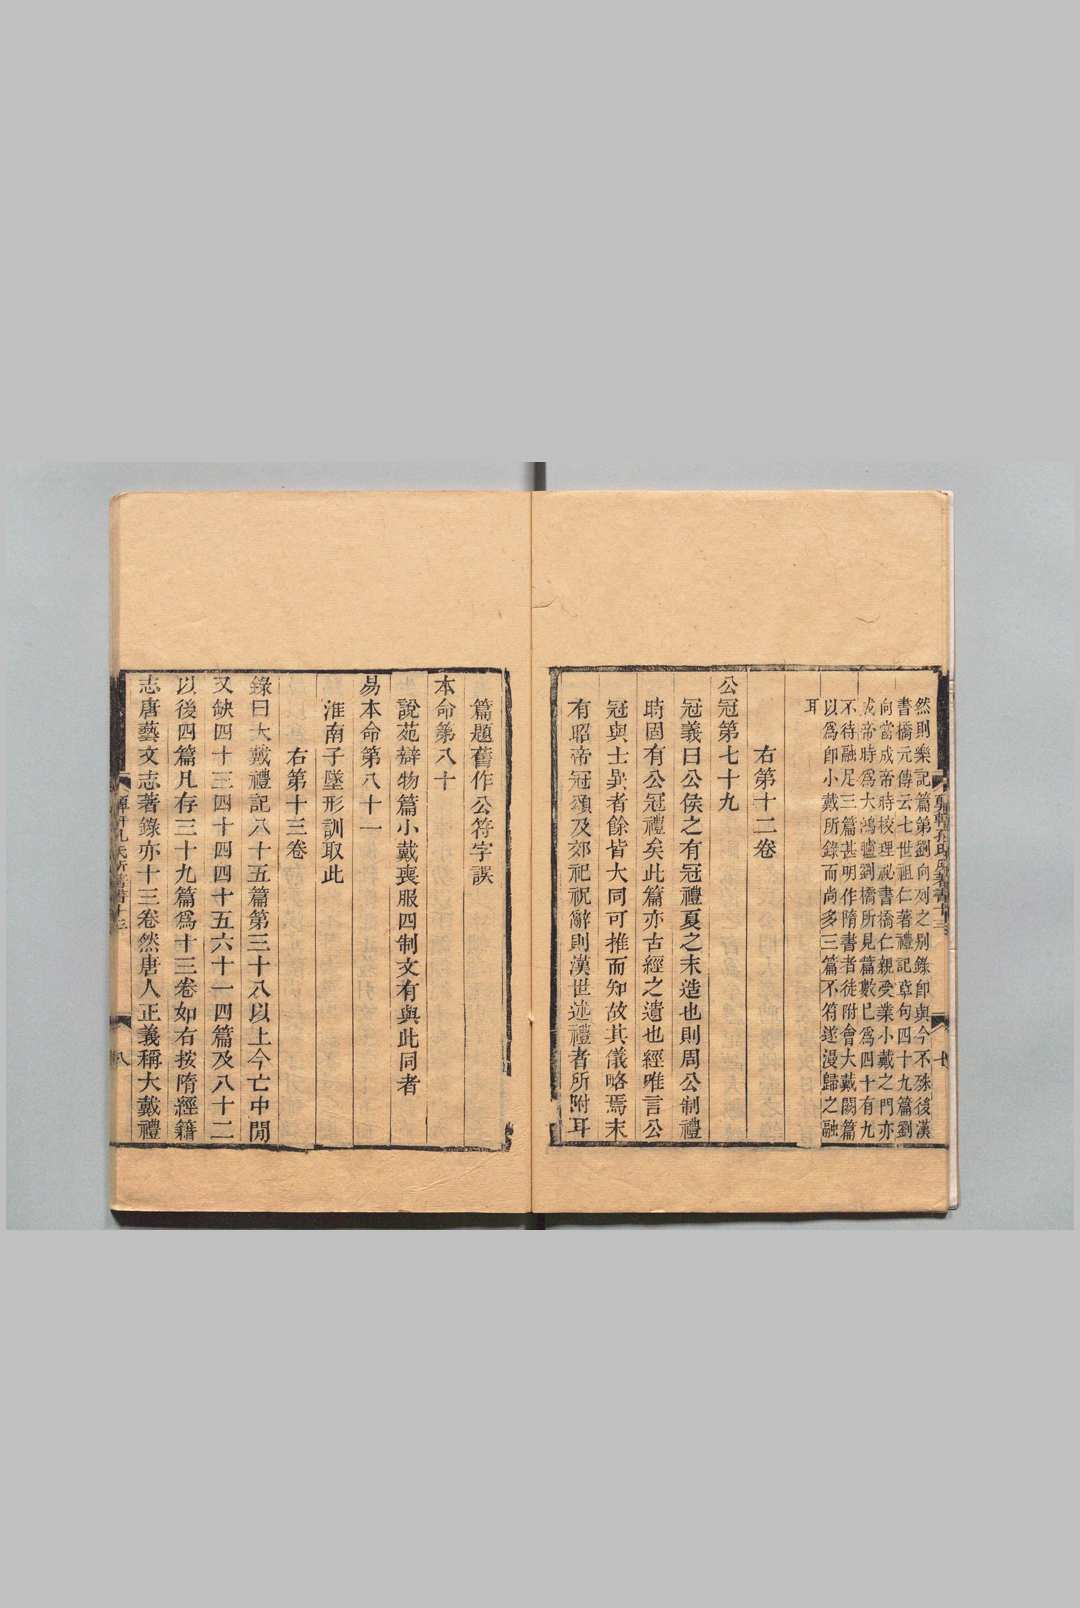 然則樂記篇第劉向列之別錄即與今不殊後漢
書橋元傳云七世祖仁著禮記章句四十九篇劉
向當成帝時校理祕書橋仁親受業小戴之門亦
成帝時爲大鴻臚劉橋所見篇數已爲四十有九
不待融足三篇甚明作隋書者徒附會大戴闕篇
以爲即小戴所錄而尚多三篇不符遂漫歸之融
耳
右第十二卷
公冠第七十九
冠義曰公侯之有冠禮夏之末造也則周公制禮
時固有公冠禮矣此篇亦古經之遺也經唯言公
冠與士異者餘皆大同可推而知故其儀略焉末
有昭帝冠頌及郊祀祝辭則漢世述禮者所附耳
篇題舊作公符字誤
本命第八十
說苑辯物篇小戴喪服四制文有與此同者
易本命第八十一
淮南子墜形訓取此
右第十三卷
錄曰大戴禮記八十五篇第三十八以上今亡中閒
又缺四十三四十四四十五六十一四篇及八十二
以後四篇凡存三十九篇爲十三卷如右按隋經籍
志唐藝文志著錄亦十三卷然唐人正義稱大戴禮
八